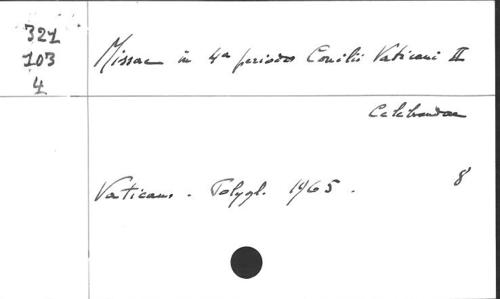 321
103
4
Missae in 4a periodos Concilii Vaticani II
Celebrandae
Vaticano - Polygl. 1965. 8